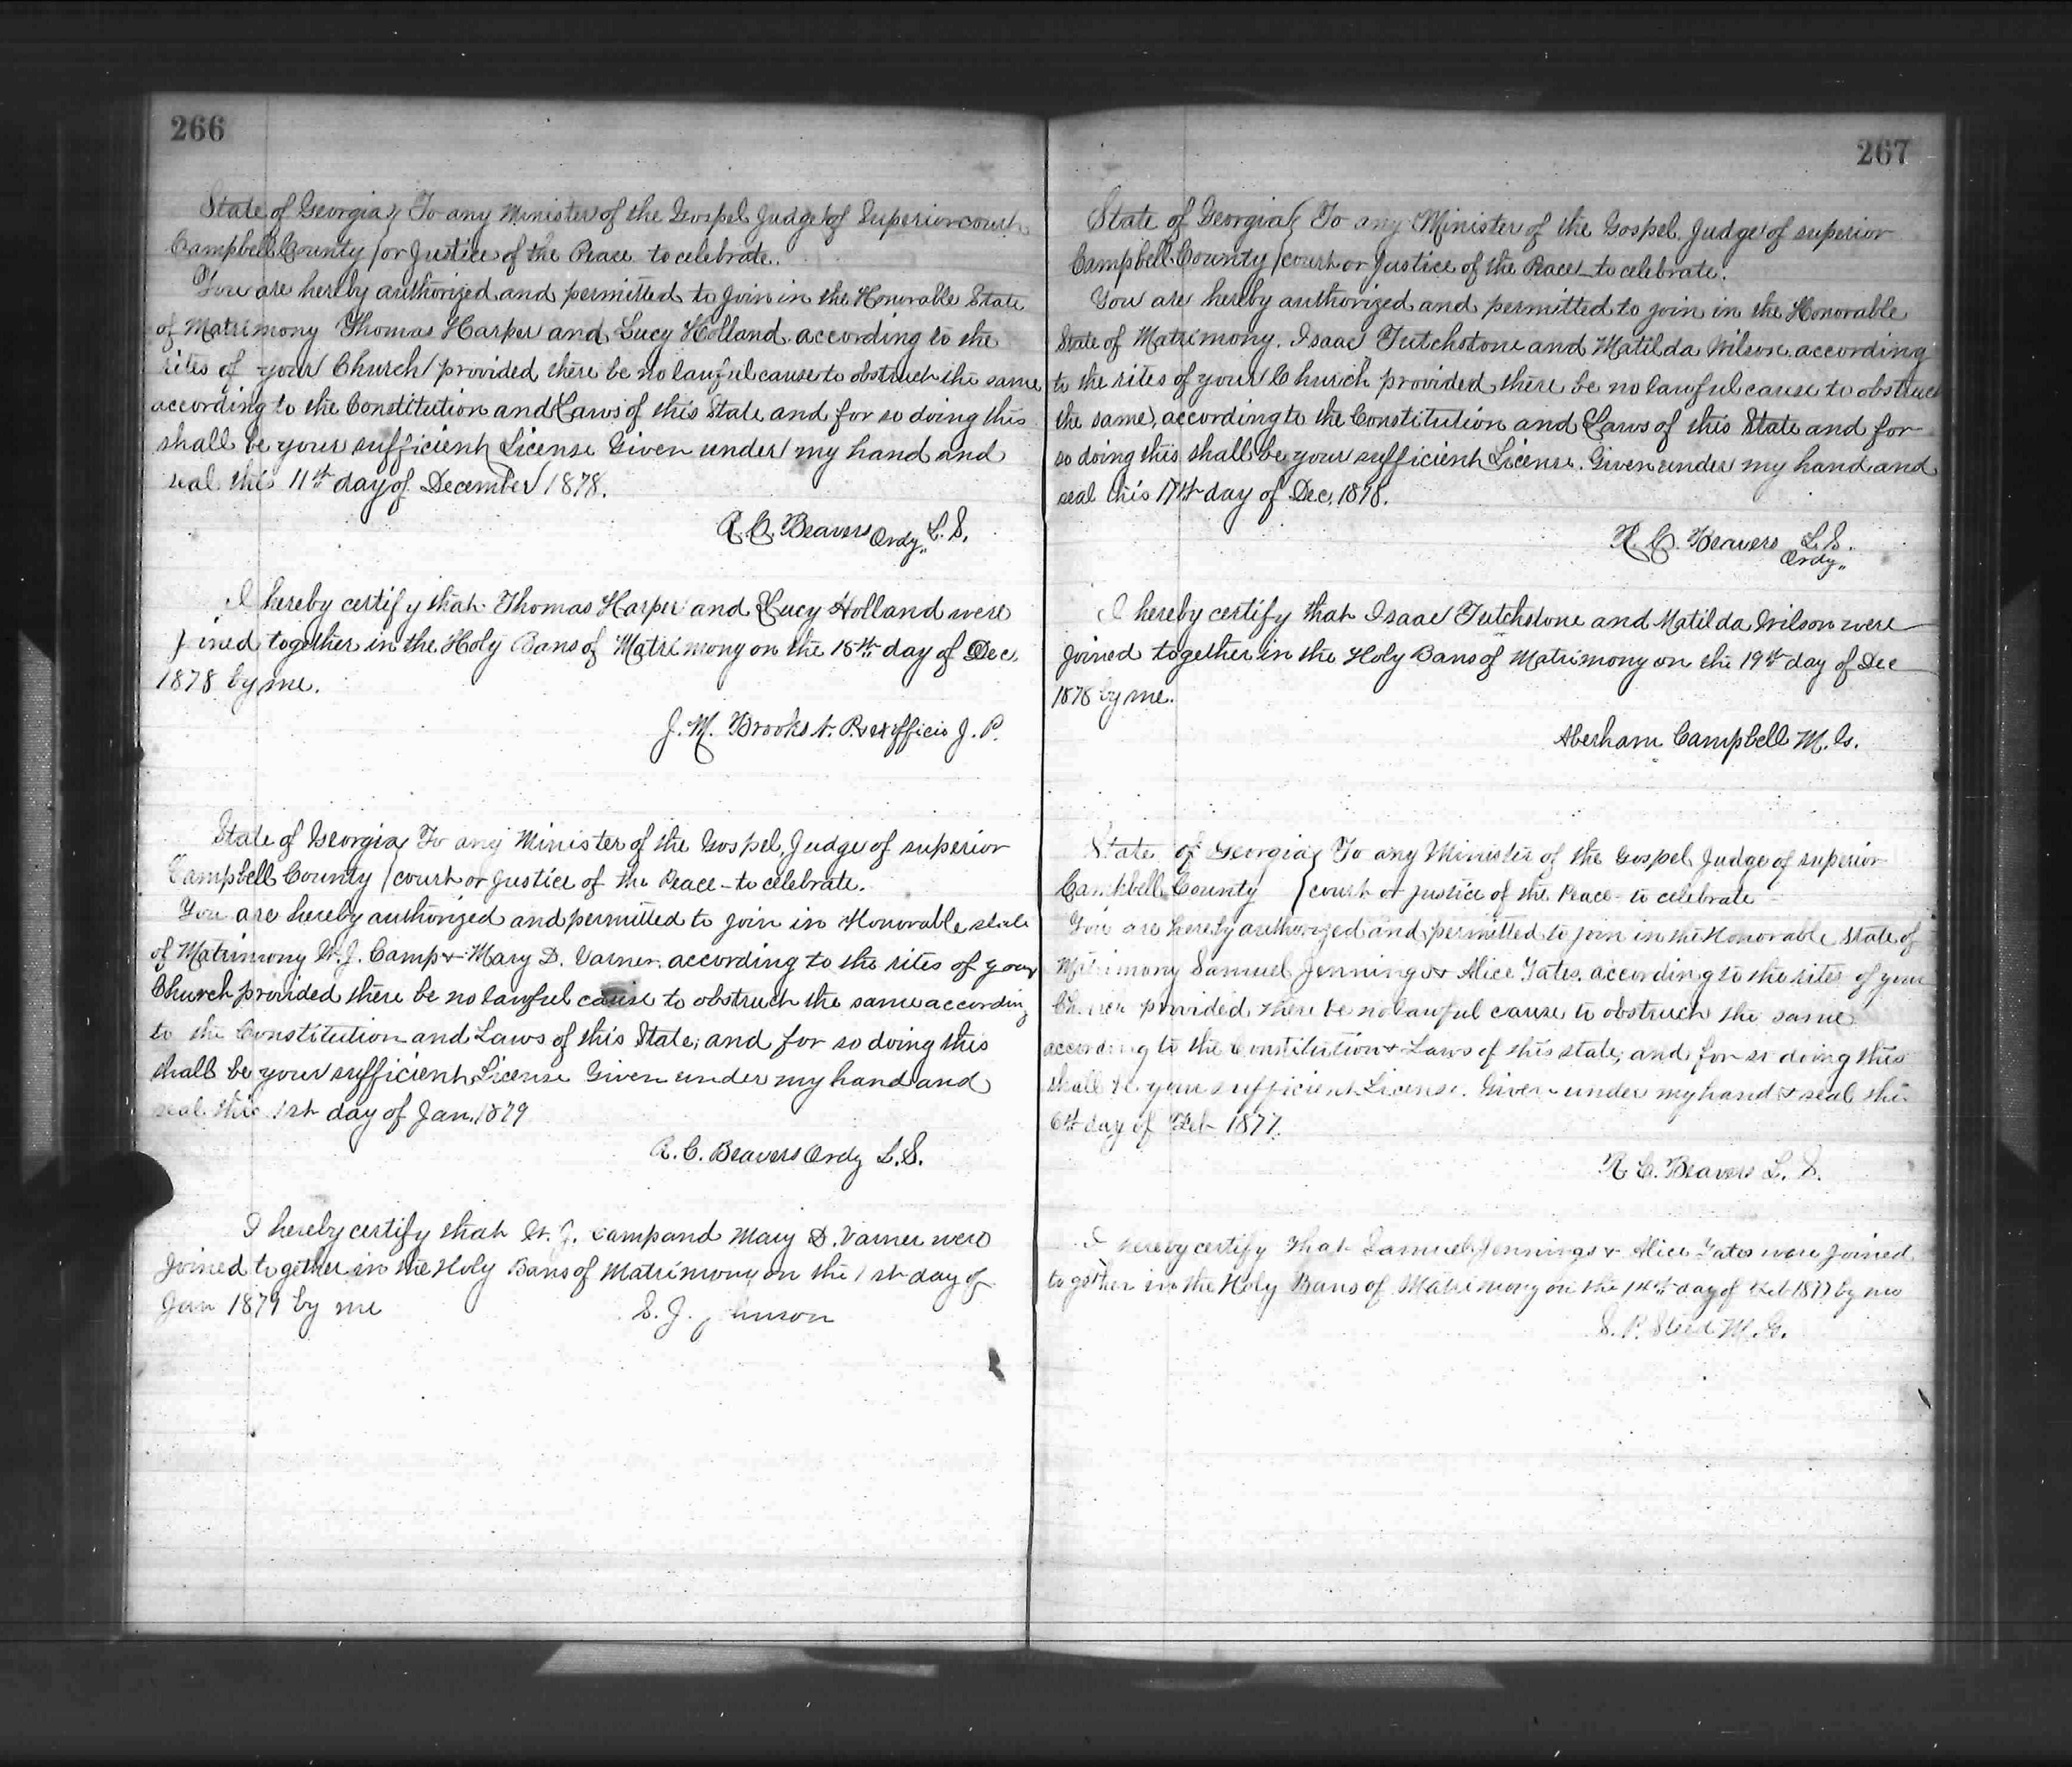 266
State of Georgia } To any Minister of the Gospel Judge of Superior court
Campbell County } or Justice of the Peace to celebrate.
You are hereby authorized and permitted to Join in the Honorable State
of Matrimony Thomas Harper and Lucy Holland according to the
rites of your Church provided there be no lawful cause to obstruch the same
according to the Constitution and Laws of this State and for so doing this
shall be your sufficient License Given under my hand and
seal this 11th day of December 1878.
R. C. Beavers Ordy,, L. S.
I hereby certify that Thomas Harper and Lucy Holland were
joined together in the Holy Bans of Matrimony on the 15th day of Dec.
1878 by me.
J. M. Brooks N. P. & exofficio J. P.
State of Georgia } To any Minister of the Gospel, Judge of superior
Campbell County } court or Justice of the Peace - to celebrate.
You are hereby authorized and permitted to join in Honorable state
of Matrimony W. J. Camp & Mary D. Varner according to the rites of your
Church provided there be no lawful cause to obstruch the same according
to the Constitution and Laws of this State, and for so doing this
shall be your sufficient License Given under my hand and
seal this 1st day of Jan. 1879
R. C. Beavers Ordy L. S.
I hereby certify that W. J. Camp and Mary D. Varner were
Joined together in the Holy Bans of Matrimony on the 1st day of
Jan 1879 by me
S. J.
267
State of Georgia } To any Minister of the Gospel, Judge of superior
Campbell County } court or Justice of the Peace - to celebrate.
You are hereby authorized and permitted to join in the Honorable
State of Matrimony. Isaac Tutchstone and Matilda Wilson according
to the rites of your Church provided there be no lawful cause to obstruct
the same, according to the Constitution and Laws of this State and for
so doing this shall be your sufficient License. Given under my hand and
seal this 17th day of Dec. 1878.
R. C. Beavers L. S.
Ordy,,
I hereby certify that Isaac Tutchstone and Matilda Wilson were
Joined together in the Holy Bans of Matrimony on the 19th day of Dec
1878 by me.
Abersham Campbell M. G.
State of Georgia } To any Minister of the Gospel Judge of superior
Camkbell County } court or justice of the Peace - to celebrate -
You are hereby authorized and permitted to join in the Honorable State of
Matrimony Samuel Jennings & Alice Yates. according to the rites of your
Church provided there be no lawful cause to obstruch the same
according to the Constitution & Laws of this state; and for so doing this
shall be your sufficient License. Given under my hand & seal this
6th day of Feb 1877.
R. C. Beavers L. S.
I hereby certify that Samuel Jennings & Alice Yates were Joined
together in the Holy Bans of Matrimony on the day of Feb 1877 by me
S. P. Steed M. G.